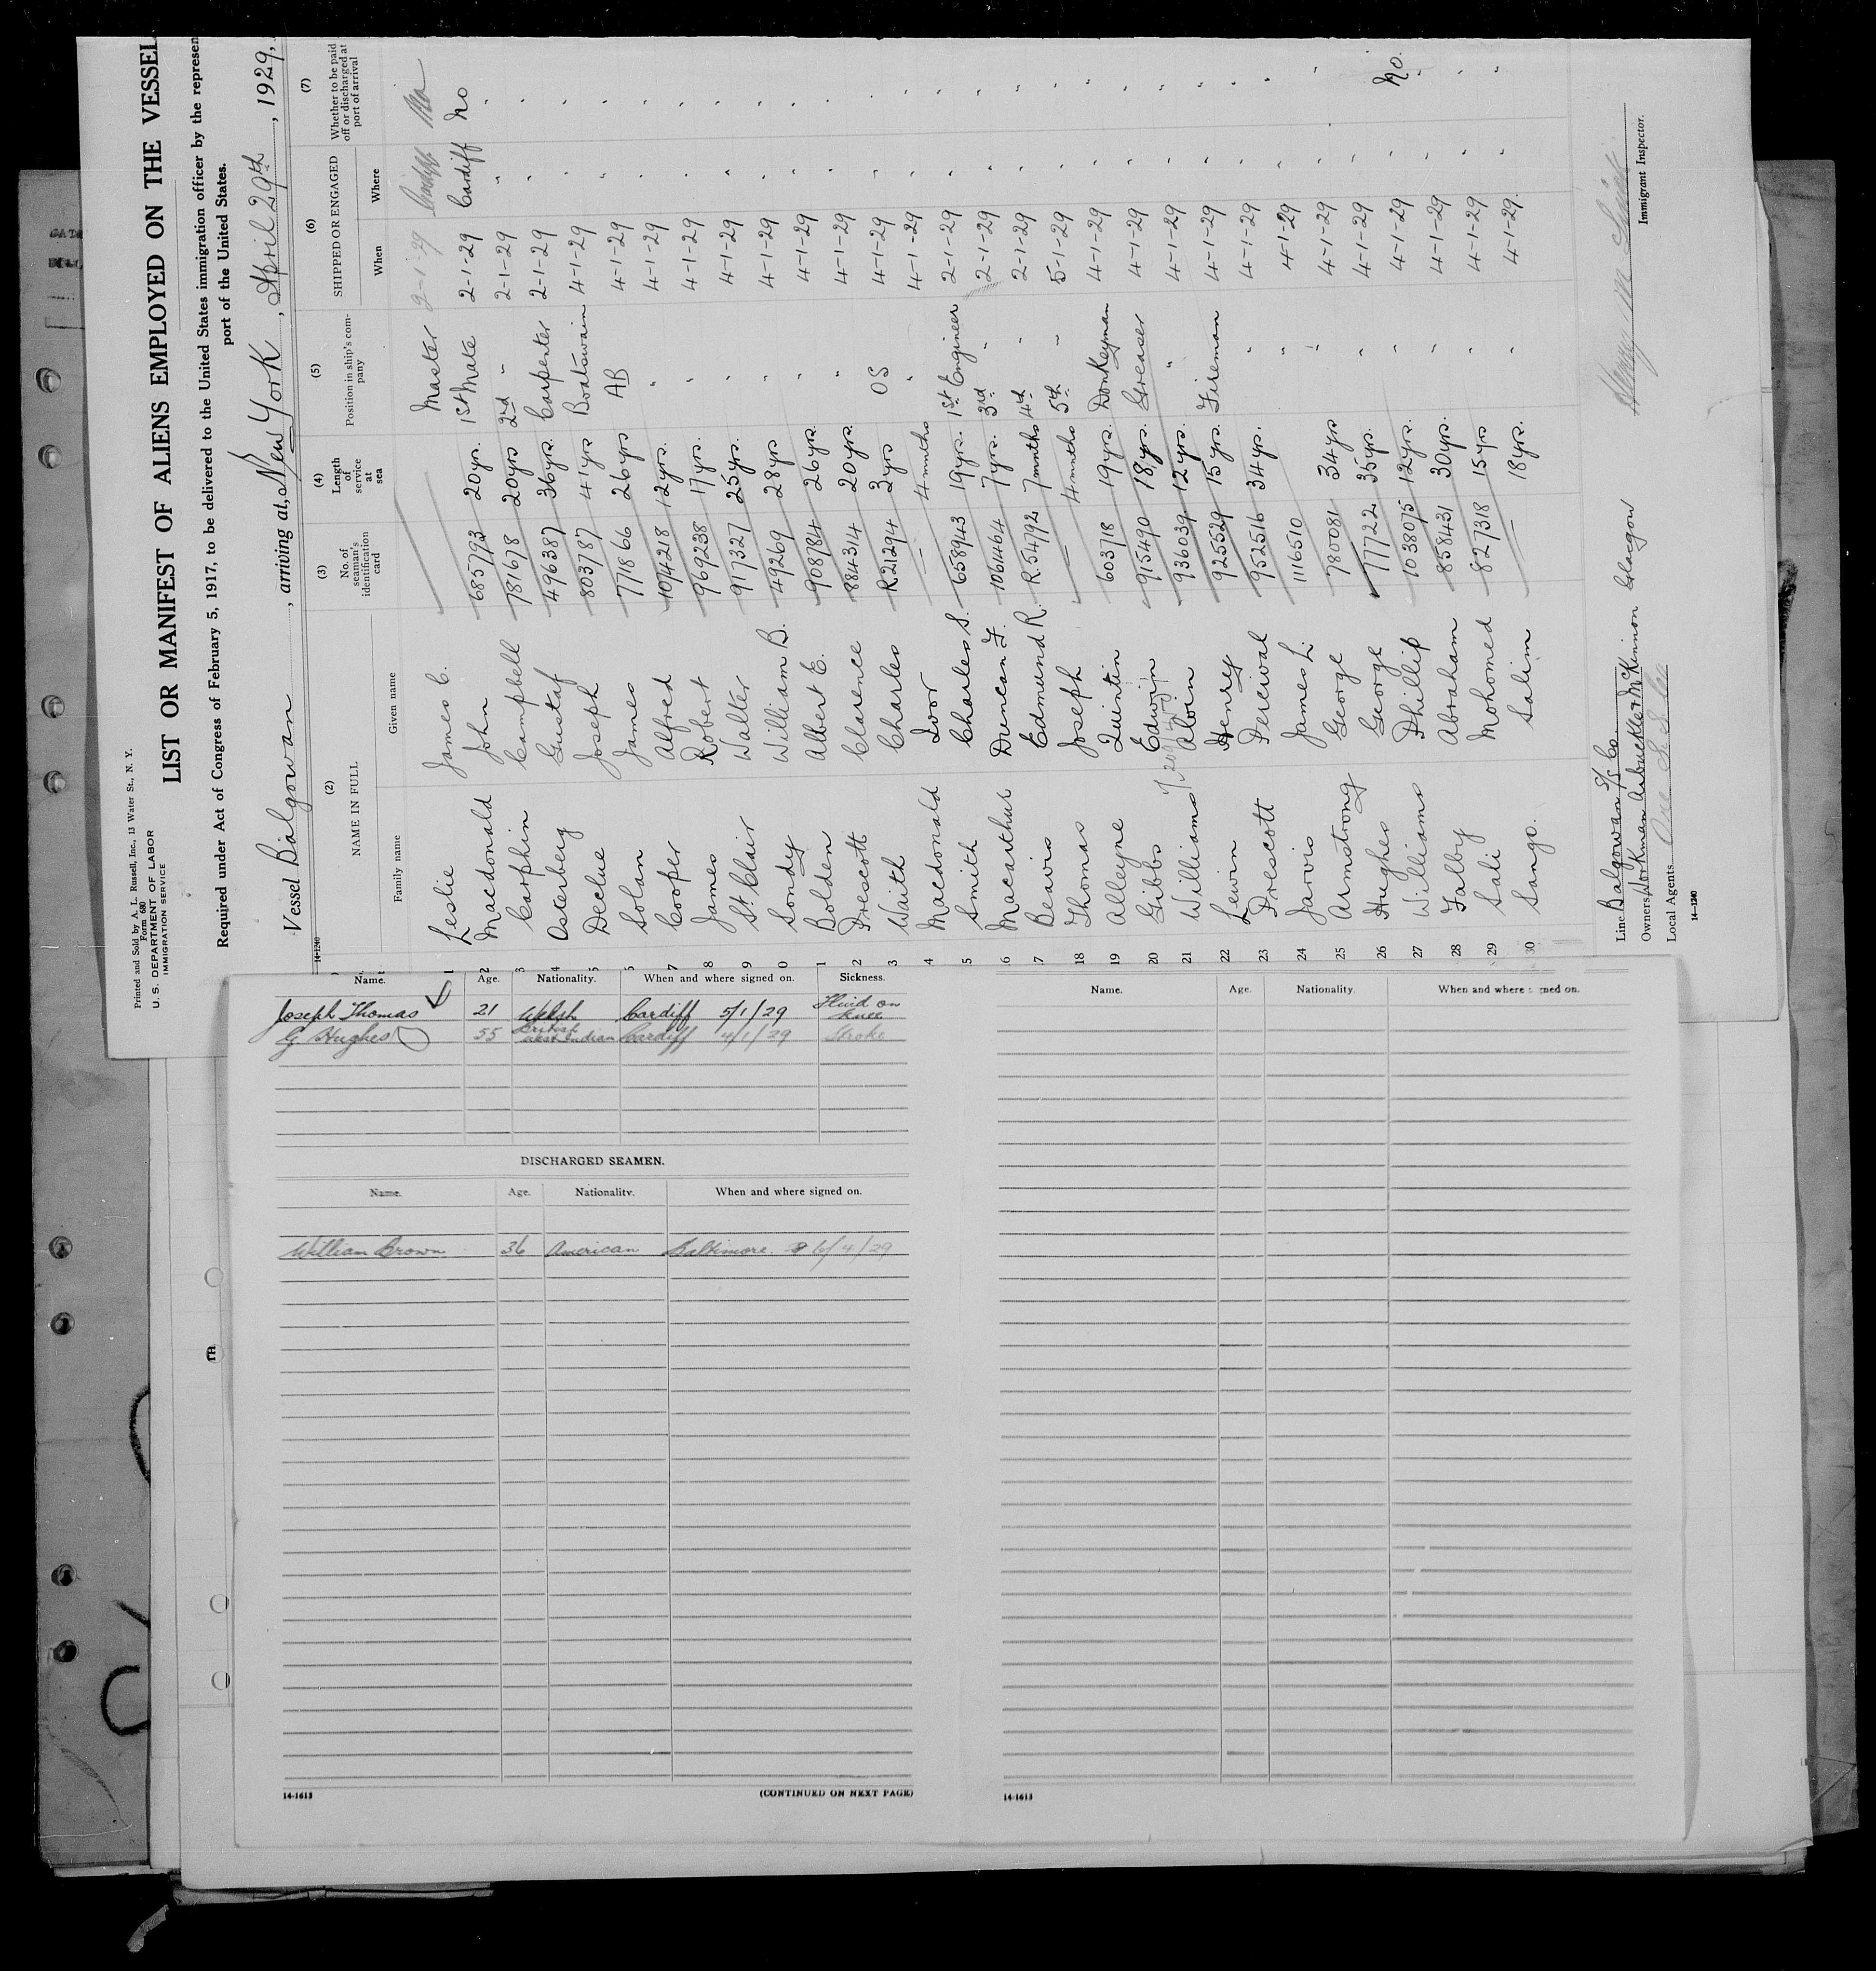 Printed and Sold by A. L. Russell, Inc., 13 Water St., N. Y.
Form 680
U. S. DEPARTMENT OF LABOR
IMMIGRATION SERVICE
LIST OR MANIFEST OF ALIENS EMPLOYED ON THE VESSEL
Required under Act of Congress of February 5, 1917, to be delivered to the United States immigration officer by the represen
port of the United States.
Vessel Balgowan, arriving at New York, April 29th, 1929,
14-1240
(2) (3) (4) (5) (6) (7)
NAME IN FULL No. of seaman's identification card Length of service at sea Position in ship's company SHIPPED OR ENGAGED Whether to be paid off or discharged at port of arrival
Family name Given name When Where
1 Leslie James C. Master 2-1-29 Cardiff
2 Macdonald John 685793 20yrs. 1st Mate 2-1-29 Cardiff No
3 Carphin Campbell 781678 20yrs 2nd " 2-1-29 " "
4 Osterberg Gustaf 496387 36yrs. Carpenter 2-1-29 " "
5 Declue Joseph 803787 41yrs Boatswain 4-1-29 " "
6 Soban James 771866 26yrs AB 4-1-29 " "
7 Cooper Alfred 1074218 12yrs. " 4-1-29 " "
8 James Robert 969238 17yrs. " 4-1-29 " "
9 St. Clair Walter 917327 25yrs. " 4-1-29 " "
0 Sondy William B. 49269 28yrs " 4-1-29 " "
1 Bolden Albert E. 908784 26yrs. " 4-1-29 " "
2 Prescott Clarence 884314 20yrs. " 4-1-29 " "
3 Waith Charles R.21294 3yrs OS 4-1-29 " "
4 Macdonald Ivor — 4 months " 4-1-29 " "
5 Smith Charles S. 658943 19yrs. 1st Engineer 2-1-29 " "
6 Macarthur Duncan F. 1061464 7yrs. 3rd " 2-1-29 " "
7 Beavis Edmund R. R.54792 7months 4th " 2-1-29 " "
18 Thomas Joseph — 4 months 5th " 5-1-29 " "
19 Alleyne Quintin 603718 19yrs. Donkeyman 4-1-29 " "
20 Gibbs Edwin 915490 18yrs. Greaser 4-1-29 " "
21 Williams Alvin 936039 12yrs. " 4-1-29 " "
22 Lewin Henry 925529 15yrs. Fireman 4-1-29 " "
23 Prescott Percival 952516 34yrs. " 4-1-29 " "
24 Jarvis James L. 1116510 " 4-1-29 " "
25 Armstrong George 780081 34yrs " 4-1-29 " "
26 Hughes George 77722 35yrs. " 4-1-29 " No.
27 Williams Phillip 1038075 12yrs. " 4-1-29 " "
28 Falby Abraham 858431 30yrs. " 4-1-29 " "
29 Sali Mohomed 827318 15yrs " 4-1-29 " "
30 Sango. Salim — 18yrs. " 4-1-29. "
Line Balgowan S/S Co.
Owners, Workman Arbuckle & McKinnon Glasgow
Local Agents
Immigrant Inspector.
14-1240
Name. Age. Nationality. When and where signed on. Sickness.
Joseph Thomas 21 Welsh Cardiff 5/1/29 Fluid on knee
G. Hughes 55 British West Indian Cardiff 4/1/29 Stroke
DISCHARGED SEAMEN.
Name. Age. Nationality. When and where signed on.
William Brown 36 American Baltimore. 6/4/29
14-1613
(CONTINUED ON NEXT PAGE)
Name. Age. Nationality. When and where signed on.
14-1613